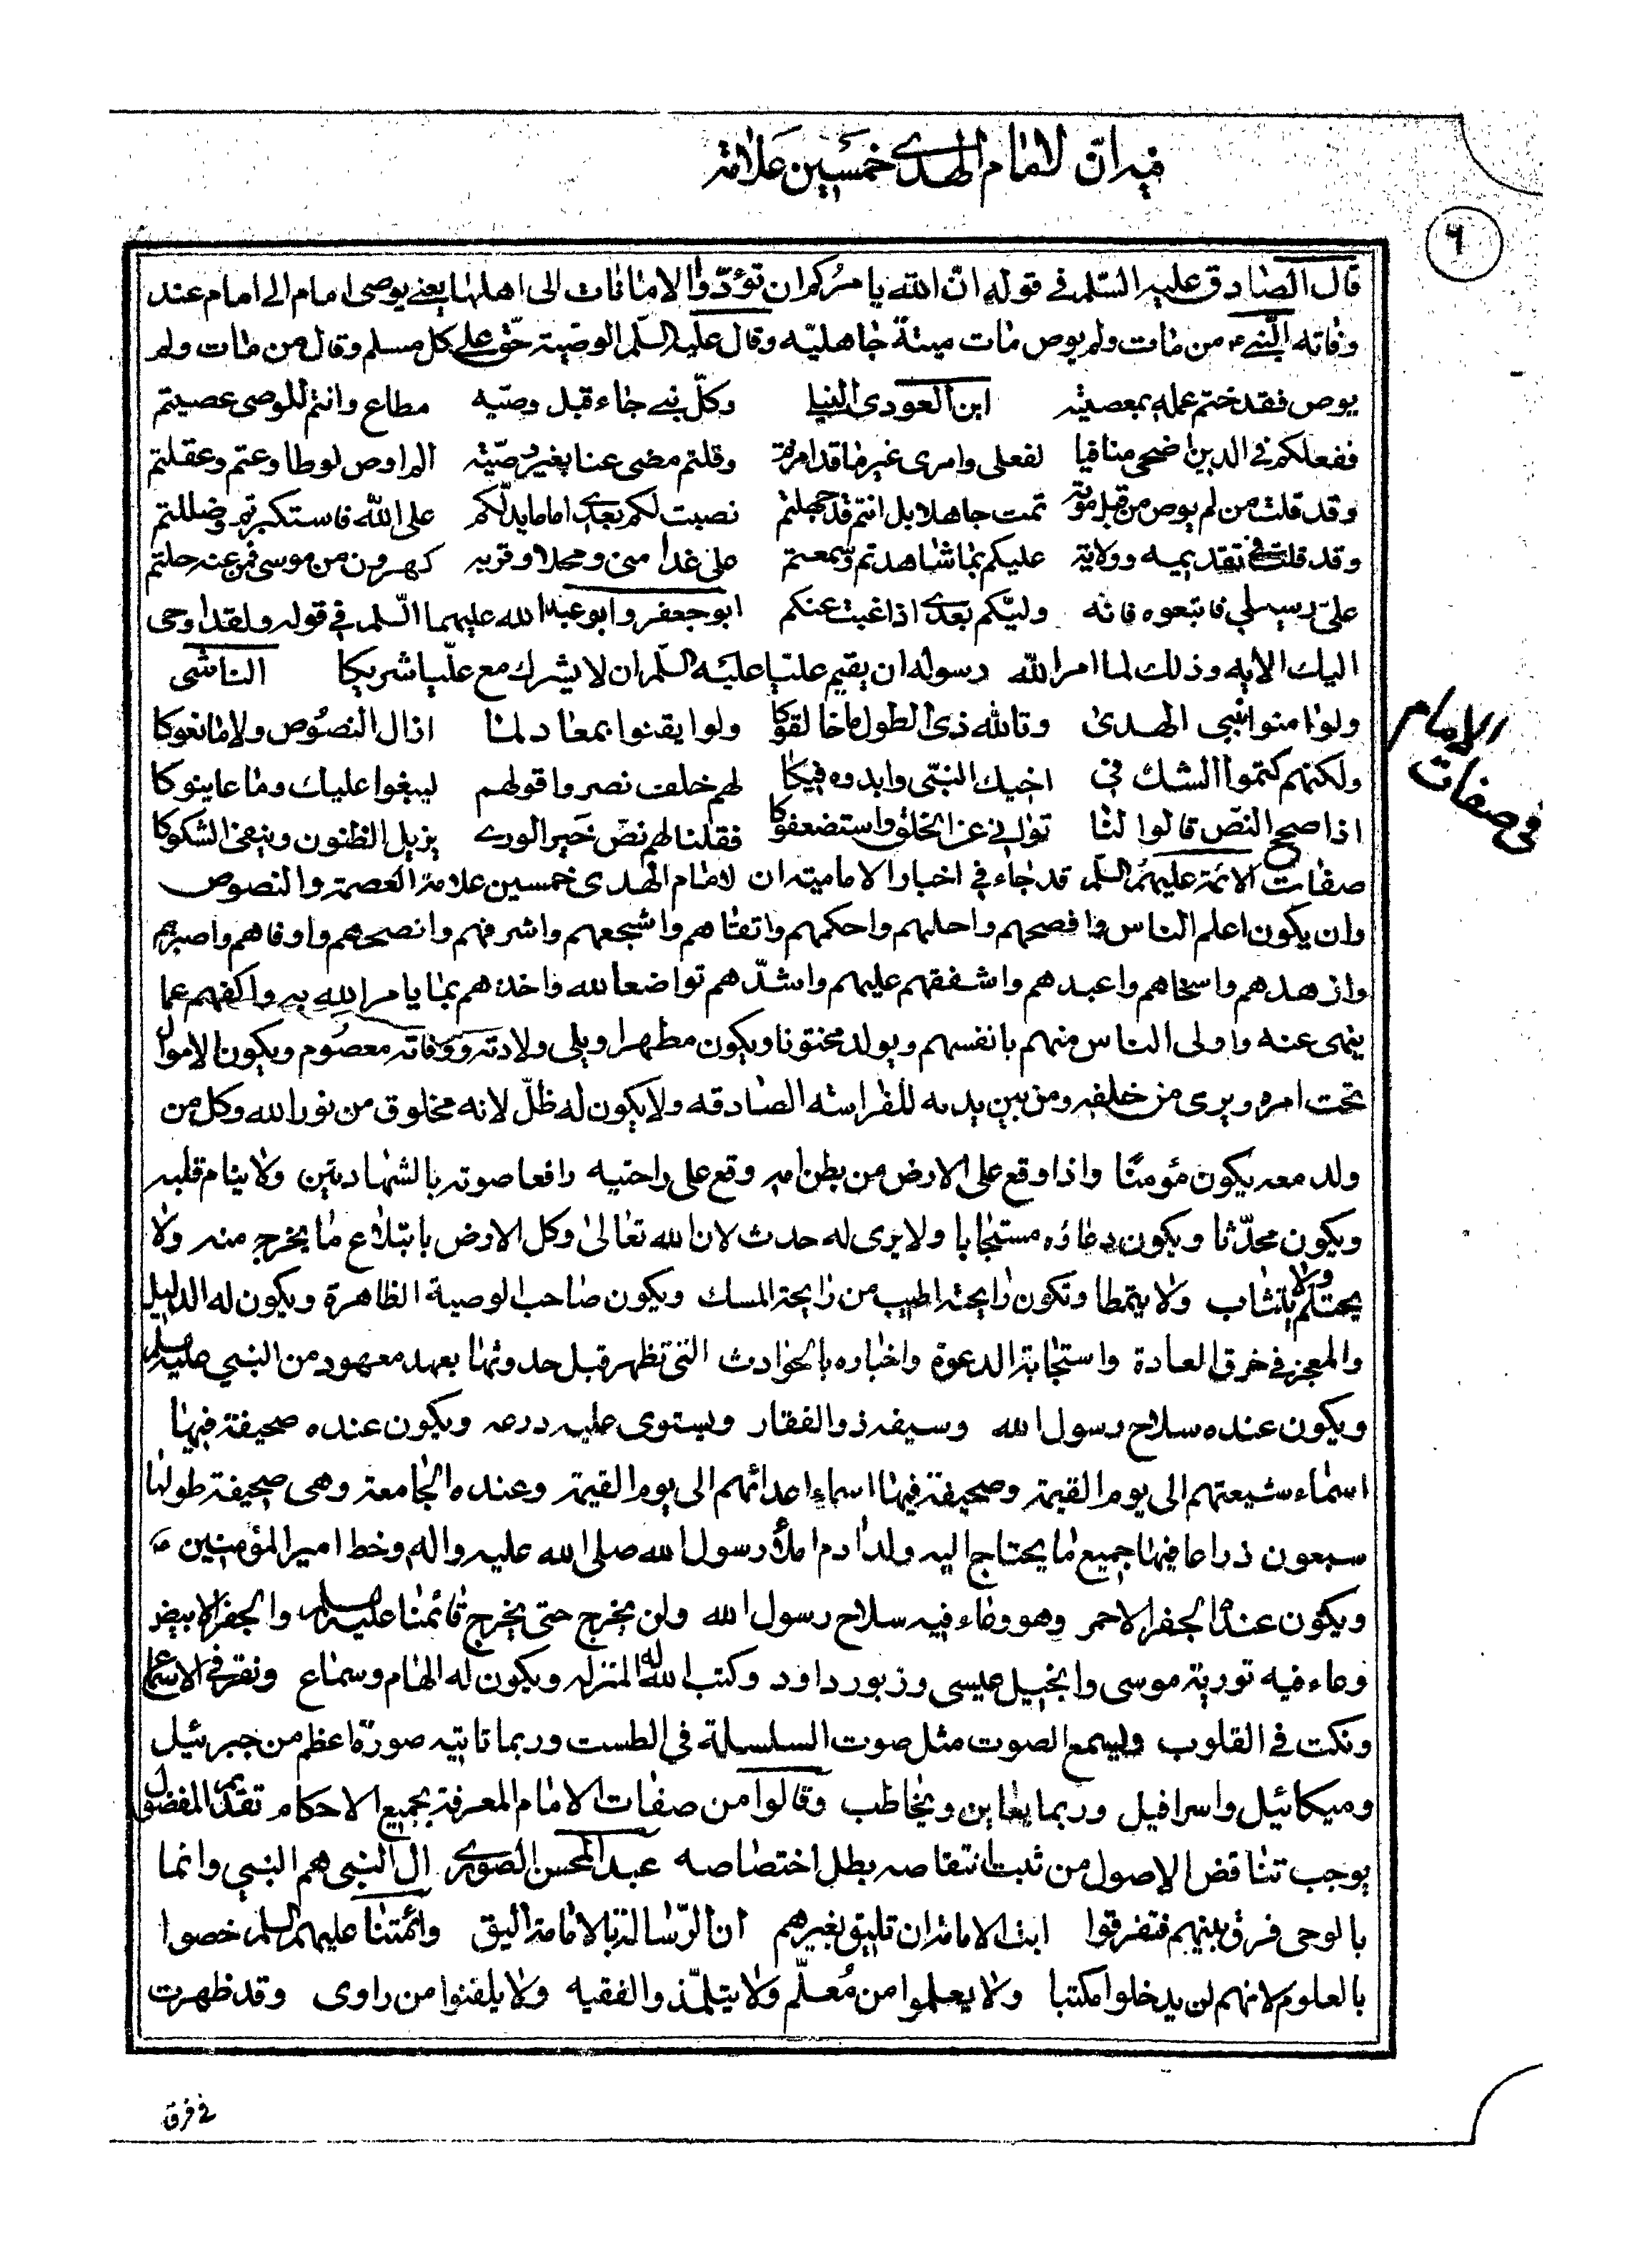 فيه ان للامام الهدى خمسين علامة
٦
قال الصادق عليه السلم في قوله ان الله يامركم ان تؤدوا الامانات الى اهلها يعني يوصى امام الى امام عند
وفاته النبي من مات ولم يوص مات ميتة جاهليه وقال عليه السلم الوصية حق على كل مسلم وقال من مات ولم
يوص فقد ختم عمله بمعصية ابن العودى النيلي وكل نبي جاء قبل وصيه مطاع وانتم للوصى عصيتم
ففعلكم في الدين اضحى منافيا لفعلى وامرى غير ما قد امرتم وقلتم مضى عنا بغير وصية الم اوص لو طاوعتم وعقلتم
وقد قلت من لم يوص من قبل موته يمت جاهلا بل انتم قد جهلتم نصبت لكم بعدي اماما يدلكم على الله فاستكبرتم وضللتم
وقد قلت في تقديمه وولاية عليكم بما شاهدتم وسمعتم على غدا منى ومحلا وقربه كهرون من موسى فمن عنه حلتم
على رسولى فاتبعوه فانه وليكم بعدي اذا غبت عنكم ابو جعفر وابو عبد الله عليهما السلم في قوله ولقد اوحى
اليك الايه وذلك لما امر الله رسوله ان يقيم عليا عليه السلم ان لا يشرك مع علي شريكا الناشى
ولو امنوا بنبي الهدى وتالله ذى الطول ما خالفوكا ولو ايقنوا بمعاد لما ازال النصوص ولا مانعوكا
ولكنهم كتموا الشك في اخيك النبي وابدوه فيكا لهم خلف نصروا قولهم ليبغوا عليك وما عاينوكا
اذا صح النص قالوا لنا توانى عن الحق واستضعفوكا فقلنا لهم نص خير الورى يزيل الظنون وينفى الشكوكا
في صفات الامام
صفات الائمة عليهم السلم قد جاء في اخبار الامامية ان للامام الهدى خمسين علامة العصمة والنصوص
وان يكون اعلم الناس وافصحهم واحلمهم واحكمهم واتقاهم واشجعهم واشرفهم وانصحهم واوفاهم واصبرهم
وازهدهم واسخاهم واعبدهم واشفقهم عليهم واشدهم تواضعا لله واخذهم بما يامر الله به واكفهم عما
ينهى عنه واولى الناس منهم بانفسهم ويولد مختونا ويكون مطهرا ويلى ولادته ووفاته معصوم ويكون الاموال
تحت امره ويرى من خلفه ومن بين يديه للفراسته الصادقه ولا يكون له ظل لانه مخلوق من نور الله وكل من
ولد معه يكون مؤمنا واذا وقع على الارض من بطن امه وقع على راحتيه رافعا صوته بالشهادتين ولا ينام قلبه
ويكون محدثا ويكون دعاؤه مستجابا ولا يرى له حدث لان الله تعالى وكل الارض بابتلاع ما يخرج منه ولا
يحتلم ولا يتثاب ولا يتمطا وتكون رايحته اطيب من رايحة المسك ويكون صاحب الوصية الظاهرة ويكون له الدليل
والمعجز في خرق العادة واستجابة الدعوة واخباره بالحوادث التى تظهر قبل حدوثها بعهد معهود من النبي عليه السلم
ويكون عنده سلاح رسول الله وسيفه ذو الفقار ويستوى عليه درعه ويكون عنده صحيفة فيها
اسماء شيعتهم الى يوم القيمة وصحيفة فيها اسماء اعدائهم الى يوم القيمة وعنده الجامعة وهى صحيفة طولها
سبعون ذراعا فيها جميع ما يحتاج اليه ولد ادم املاء رسول الله صلى الله عليه واله وخط امير المؤمنين ع
ويكون عنده الجفر الاحمر وهو وعاء فيه سلاح رسول الله ولن يخرج حتى يخرج قائمنا عليه السلم والجفر الابيض
وعاء فيه تورية موسى وانجيل عيسى وزبور داود وكتب الله المنزلة ويكون له الهام وسماع ونقر في الاسماع
ونكت في القلوب وليسمع الصوت مثل صوت السلسلة في الطست وربما تاتيه صورة اعظم من جبرئيل
وميكائيل واسرافيل وربما يعاين ويخاطب وقالوا من صفات الامام المعرفة بجميع الاحكام تقديم المفضول
يوجب تناقض الاصول من ثبت انتقاصه بطل اختصاصه عبد المحسن الصوري ال النبى هم النبي وانما
بالوحى فرق بينهم فتفرقوا ابت الامامة ان تليق بغيرهم ان الرسالة بالامامة اليق وائمتنا عليهم السلم خصوا
بالعلوم لانهم لن يدخلوا مكتبا ولا يعلموا من معلم ولا يتلمذوا الفقيه ولا يلقنوا من راوى وقد ظهرت
في فرق